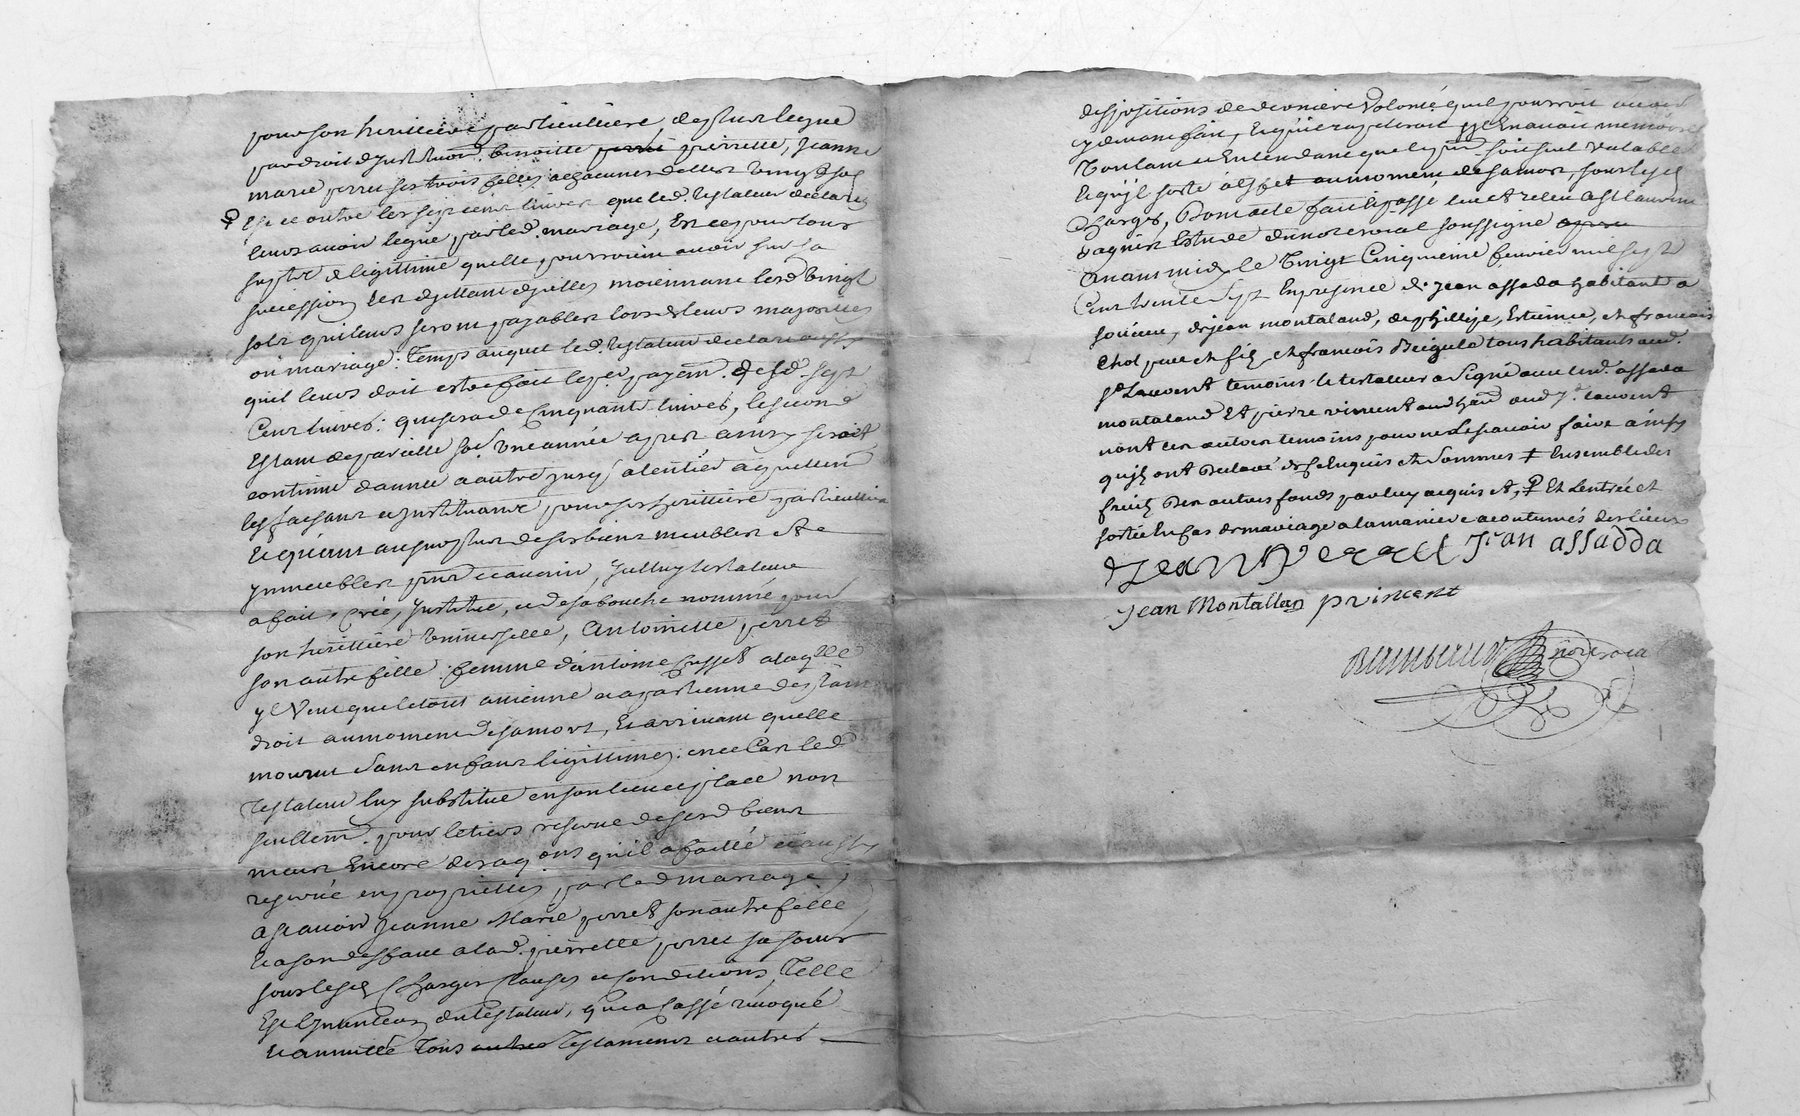 pour son herittiere particuilliere et sur legue
par droit d'justituon. benoitte perret pierrette, jeanne
marie perret ses trois filles a chacunes d'elles vingt sols
Et ce outre les sept cent livres que led. testateur declare
leurs avoir legué par led. mariage, Et ce pour tous
supt. de legittime quelle pourroient avoir sur sa
sucession, moiennant lesd. vingt
sols qui leurs seront payables lors de leurs majorittés
ou mariage: temps auquel led. testateur declare aussy
quil leurs doit estre fait le p.er payem. desd. sept
Cent livres: que sera de Cinquante livres, le second
Estant de pareille so.e une année apres ainsy seroit
continué d'année a autre jusq. a lentier
les faisant et justituant pour ses heritiere particulliere
Et quant au surplus de ses biens meubles et
ymmeubles pnt et avenir, jcelluy testateur
a fait, créé, justitué, et de sa bouche nommé pour
son herittiere universelle, Antoinette perret
son autre fille femme d'antoine Cusset a laqlle
yl veut que le tout avienne et apartienne de plain
droit au moment de sa mort, Et arrivant quelle
mourut sans enfans legittimes: en ce Cas led.
testateur luy substitue en son lieu et place non
seullem. pour le tiers reservé de sesd. biens
mais Encore des qu'il a et aussy
reservé en proprietté par led. mariage
a scavoir jeanne Marie perret son autre fille
Et a son deffaut a lad. pierrette perret sa soeur
sous les Charges Clauses et conditions, telle
Est l'jntention du testateur, qui a Cassé revoqué
Et annullé tous autres testaments et autres
dispositions de derniere volonté quil pourroit avoir
cy devant fait, yl En avoit memoire
voulant et Entendant que le pnt. soit seul valable
Et quil sorte a effet au moment de sa mort, sous les
Charges, Dont acte fait et passé leu et releu a St laurent
d'agnis Estude du not.e royal soussigné apres
avant midy le vingt Cinquieme fevrier mil sept
Cent trente sept En presence de jean assada habitant a
soucieu, de jean montaland, de phillipe, Estienne, et francois
Chol pere et fils et francois tous habitants aud.
St Laurent temoins le testateur a signé avec lesd. assada
montaland Et pierre vincent aud. St. laurent
non les autres temoins pour ne le scavoir faire ainsy
quils ont declaré de ce Enquis et sommés ‡ Ensemble des
fruits Des autres fonds par luy acquis et, Et Lentrée et
sortie En cas de mariage a la maniere acoutumés des lieux
Jean perret Jean assadda
jean Montallan p vincent
not. royal